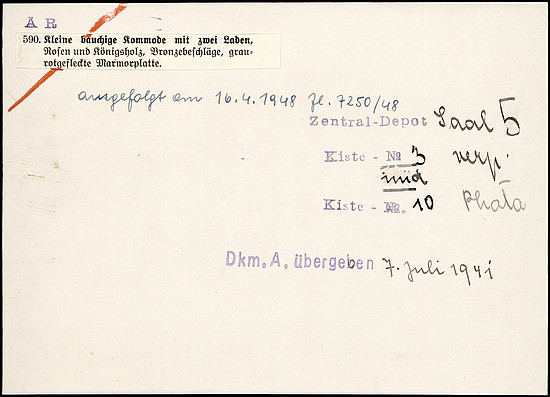 ÄR
590. Kleine bauchige Kommode mit zwei Laden,
Rosen und Königsholz, Bronzebeschläge, grau-
rotgefleckte Marmorplatte.
ausgefolgt am 16.4.1948 Zl. 7250/48
Zentral-Depot Saal 5
Kiste - № 3 verp.
und
Kiste - №. 10 Phata
Dkm. A. übergeben 7. Juli 1941